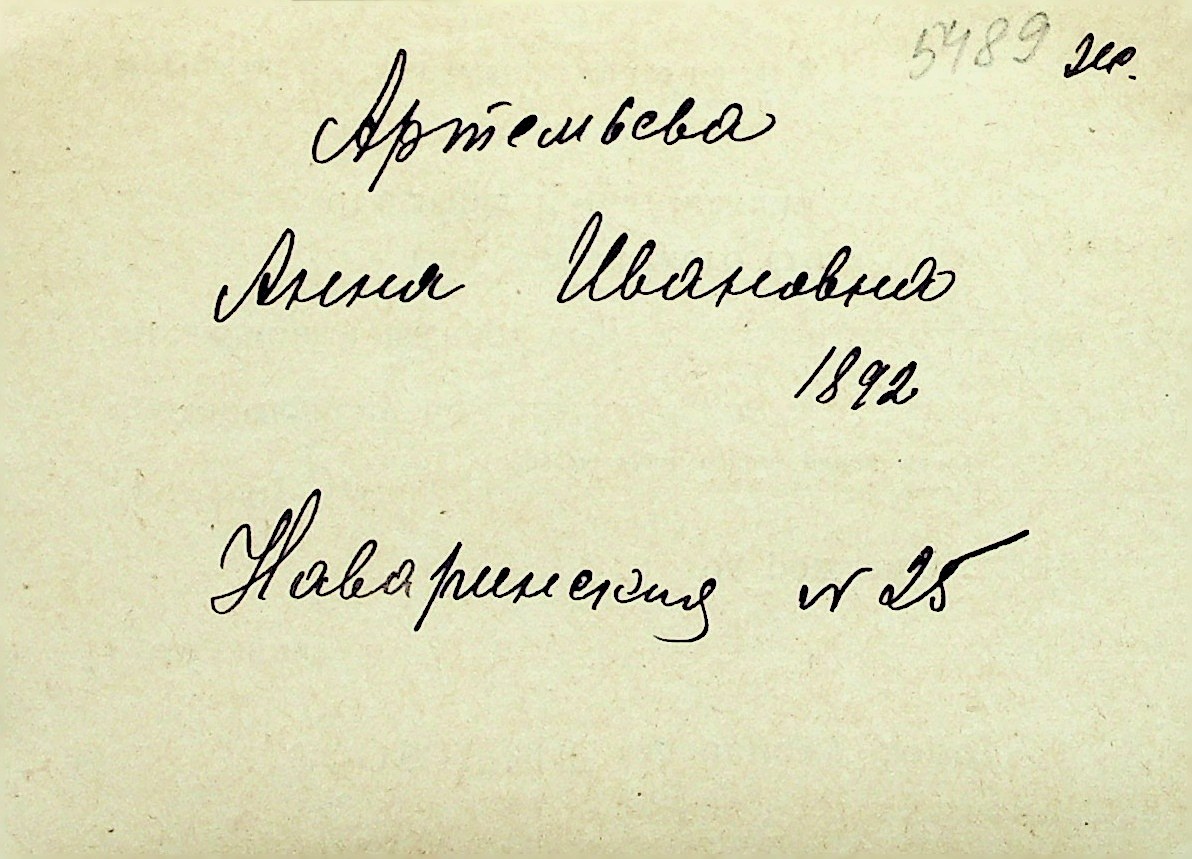 5489 же.
Артемьева
Анна Ивановна
1892
Наваринская N 25